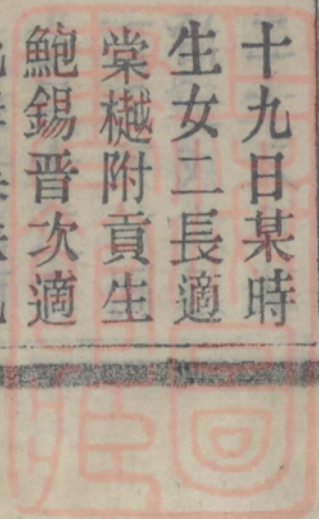 十九日某時
生女二長適
棠樾附貢生
鮑錫晋次適